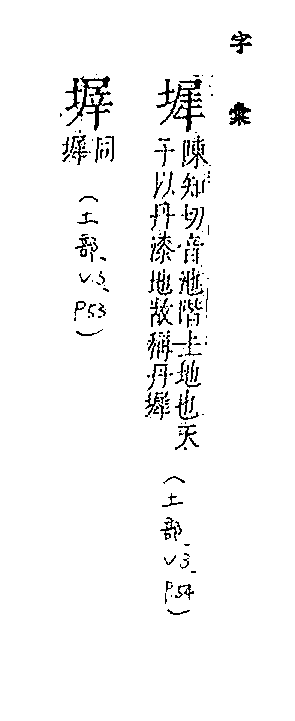 字彙
墀
陳知切音池階上地也天
子以丹漆地故稱丹墀
(土部 V.3 P.54)
同
墀
(土部 V.3 P.53)